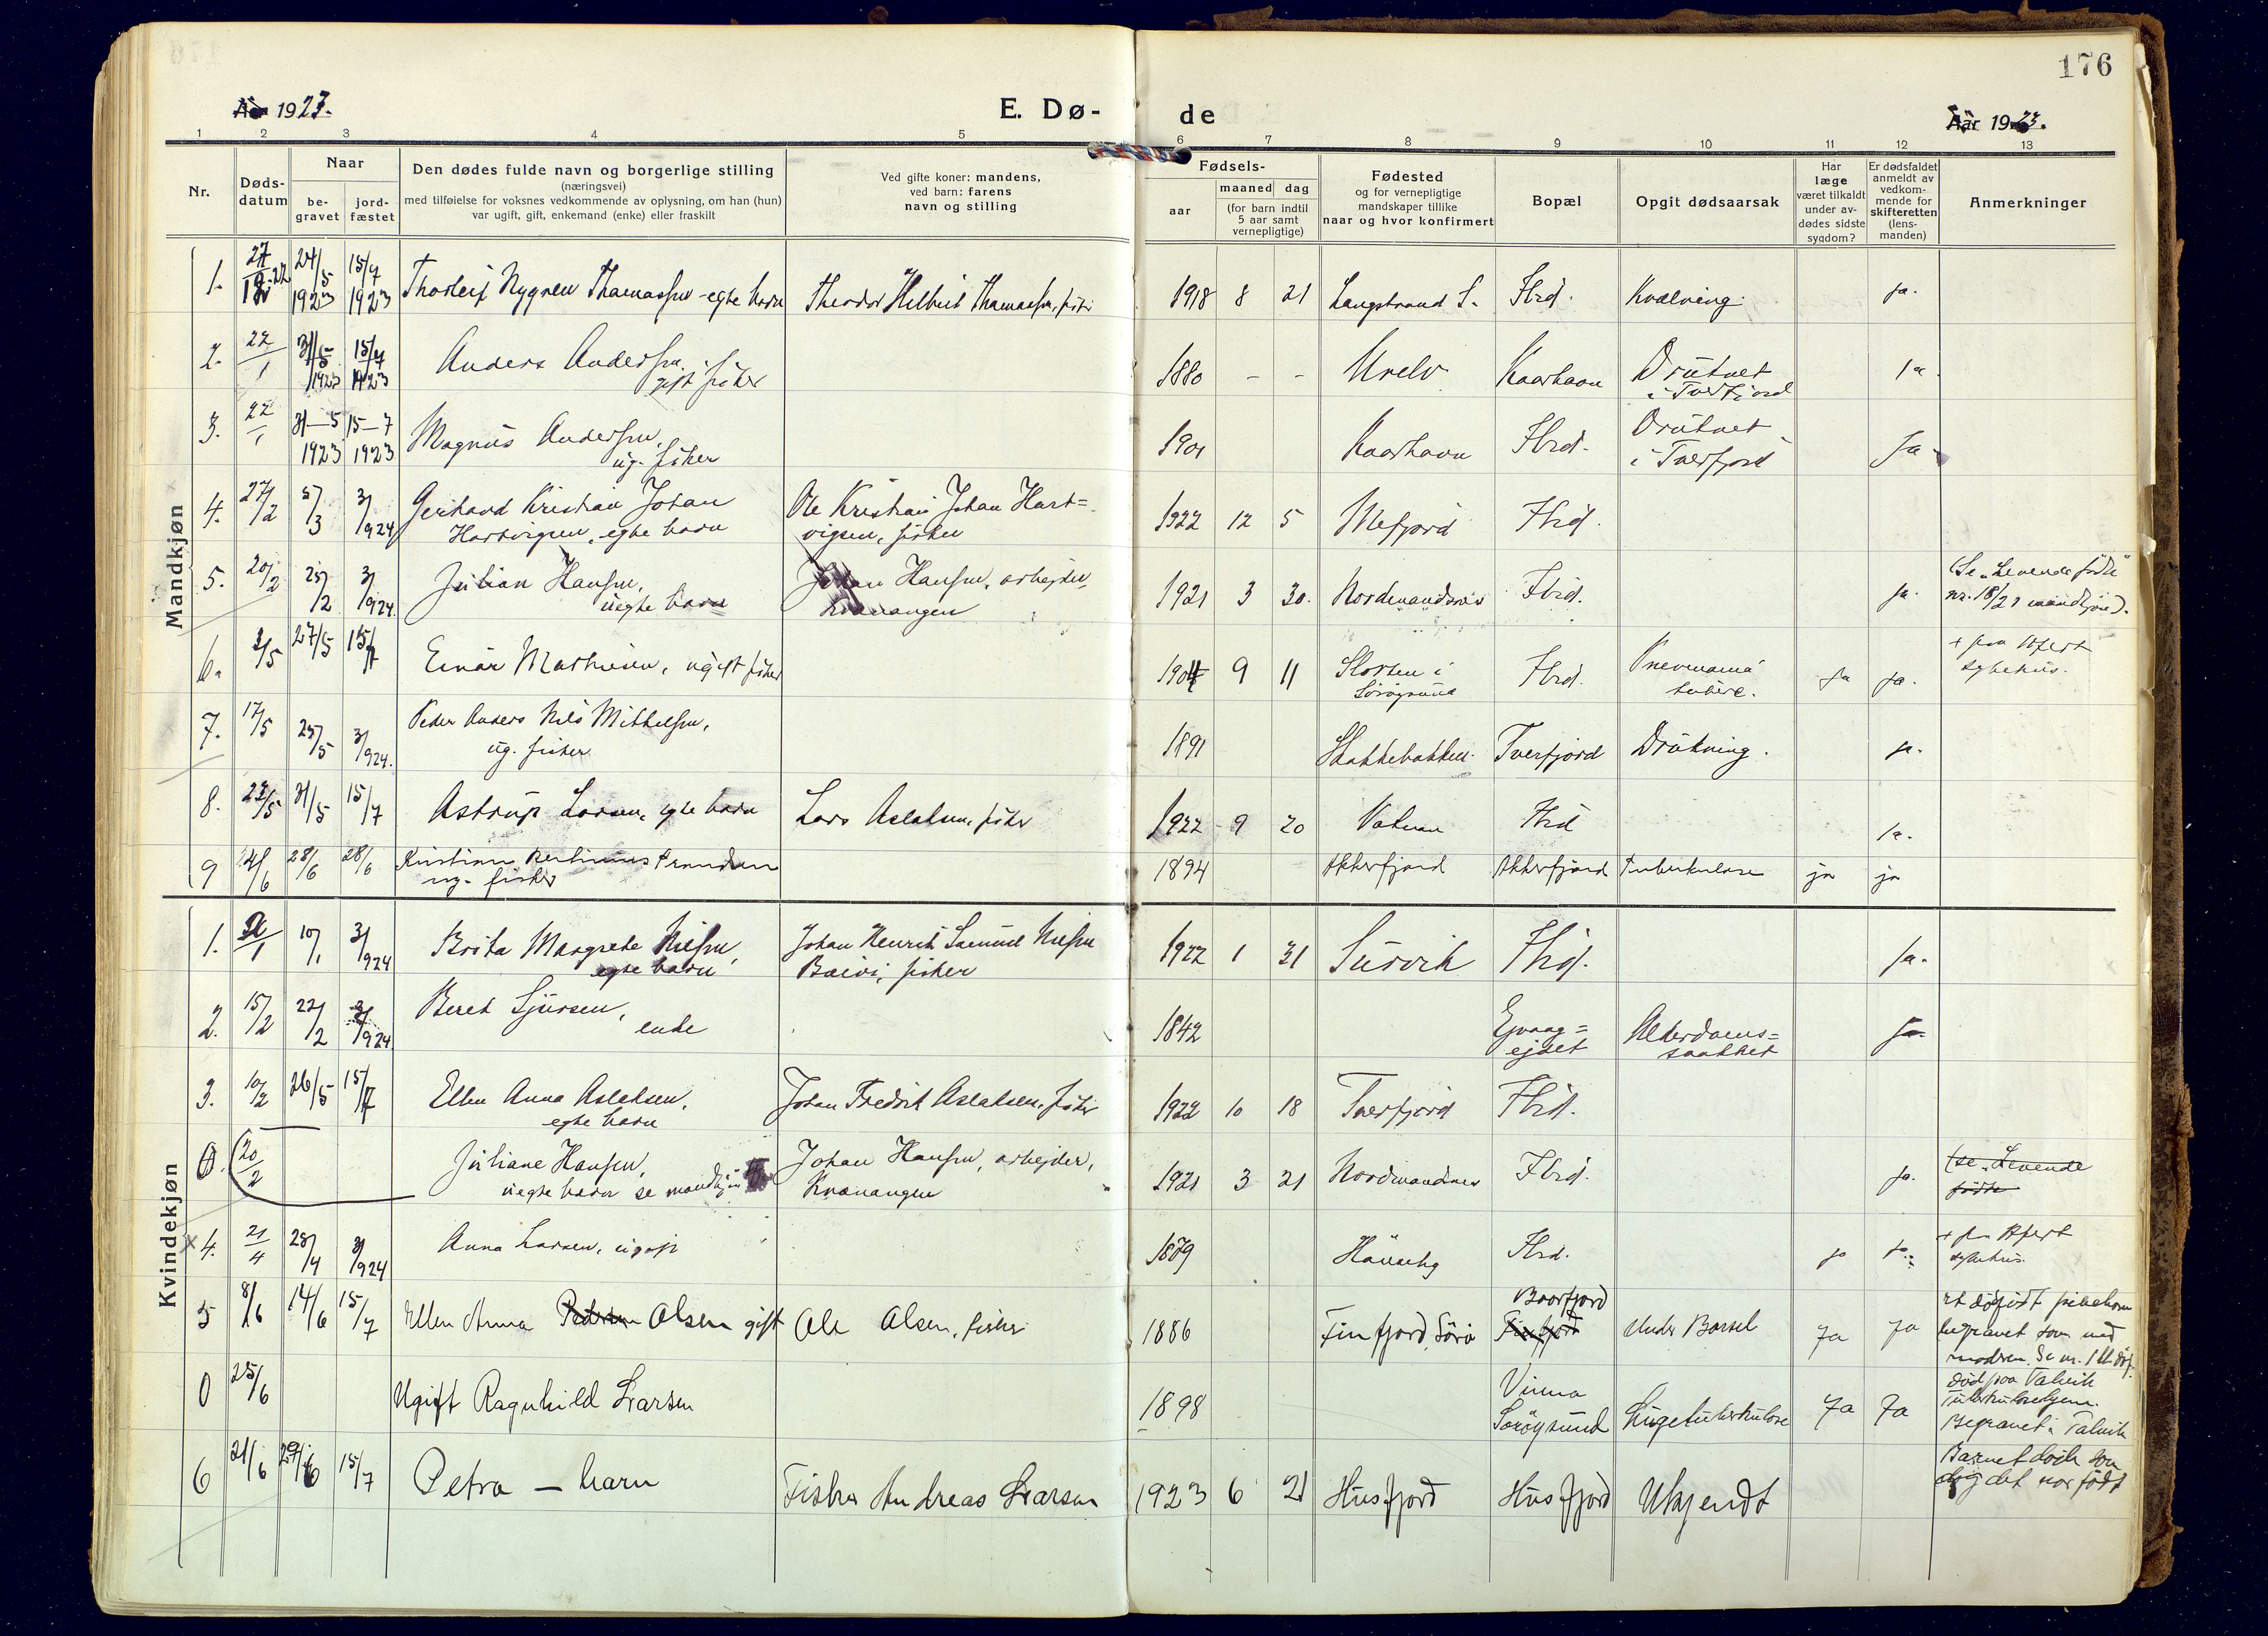 176
Aar 1923.
E. Dø-
de
Aar 1923.
1 2 3 4 5 6 7 8 9 10 11 12 13
Nr.
Døds-
datum
Naar
be-
gravet
jord-
fæstet
Den dødes fulde navn og borgerlige stilling
(næringsvei)
med tilføielse for voksnes vedkommende av oplysning, om han (hun)
var ugift, gift, enkemand (enke) eller fraskilt
Ved gifte koner: mandens,
ved barn: farens
navn og stilling
Fødsels-
aar
maaned dag
(for barn indtil
5 aar samt
vernepligtige)
Fødested
og for vernepligtige
mandskaper tillike
naar og hvor konfirmert
Bopæl
Opgit dødsaarsak
Har
læge
været tilkaldt
under av-
dødes sidste
sygdom?
Er dødsfaldet
anmeldt av
vedkom-
mende for
skifteretten
(lens-
manden)
Anmerkninger
Mandkjøn
1. 24/5 1923 15/7 1923 Thorleif Nygren Thomassen - egte barn Theodor Hilbert Thomassen, fisker 1918 8 21 Langstrand S. Ibid. Kvælning. ja.
2. 22/1 31/5 1923 15/7 1923 Anders Andersen,
gift fisker 1880 - - Kaarhavn Druknet
i Tverfjord ja.
3. 22/1 31-5 1923 15-7 1923 Magnus Andersen,
ug. fisker 1901 Kaarhavn Ibid. Druknet
i Tverfjord Ja.
4. 27/2 5/3 3/1 924 Gerhard Kristian Johan
Hartvigsen, egte barn
Ole Kristian Johan Hart=
vigsen, fisker 1922 12 5 Mefjord Ibid.
5. 20/2 25/2 3/1 924. Julian Hansen,
uegte barn
Johan Hansen, arbejder
Kvænangen 1921 3 30. Nordmandsnes Ibid. ja.
(Se "Levende fødte"
nr. 18/21 mandkjøn).
6. 3/5 27/5 15/7 Einar Mathisen, ugift fisker 1904 9 11 Slotten i
Sørøysund Ibid. ja ja.
+ paa Hfest
sykehus.
7. 17/5 25/5 3/1 924. Peder Anders Nils Mikkelsen,
ug. fisker 1891 Skakkebakken. Tverfjord Drukning. ja.
8. 23/5 31/5 15/7 Astrup Larsen, egte barn Lars Aslaksen, fisker 1922 9 20 Ibid ja.
9 14/6 28/6 28/6 Kristian
ug. fisker 1894 Akkerfjord Akkerfjord Tuberkulose ja ja
Kvindekjøn
1. 10/1 3/1 924 Brita Margrete Nilsen,
egte barn
Johan Henrik Samuel Nilsen
Baivi, fisker 1922 1 31 Survik Ibid. Ja.
2. 15/2 22/2 3/1 924. Beret Sjursen,
enke 1842 Ejvaag=
ejdet Alderdoms=
svakhet Ja.
3. 10/2 26/5 15/7 Ellen Anna Aslaksen,
egte barn Johan Fredrik Aslaksen, fisker 1922 10 18 Tverfjord Ibid.
0. (20/2 Juliane Hansen,
uegte barn se mandkjøn
Johan Hansen, arbejder,
Kvænangen 1921 3 21 Nordmandnes Ibid. ja.
(se "Levende
fødte
x 4. 21/4 28/4 3/1 924 Anna Larsen, ugift 1879 Ibid. ja ja.
+ paa Hfest
sykehus.
5 8/6 14/6 15/7 Ellen Anna Pedersen Olsen gift Ole Olsen, fisker 1886 Finfjord, Sørø Baarfjord
Finfjord Under Barsel Ja Ja
et dødfødt pikebarn
begravet sm. med
modren. Se nr. 1 U. døf.
0 25/6 Ugift Ragnhild Larsen 1898 Vinna
Sørøysund Lungetuberkulose Ja Ja
død paa Talvik
Tuberkulosehjem.
Begravet i Talvik
6 21/6 29/6 15/7 Petra - barn Fisker Andreas Larsen 1923 6 21 Husfjord Husfjord Ukjendt
Barnet døde som
dag det var født